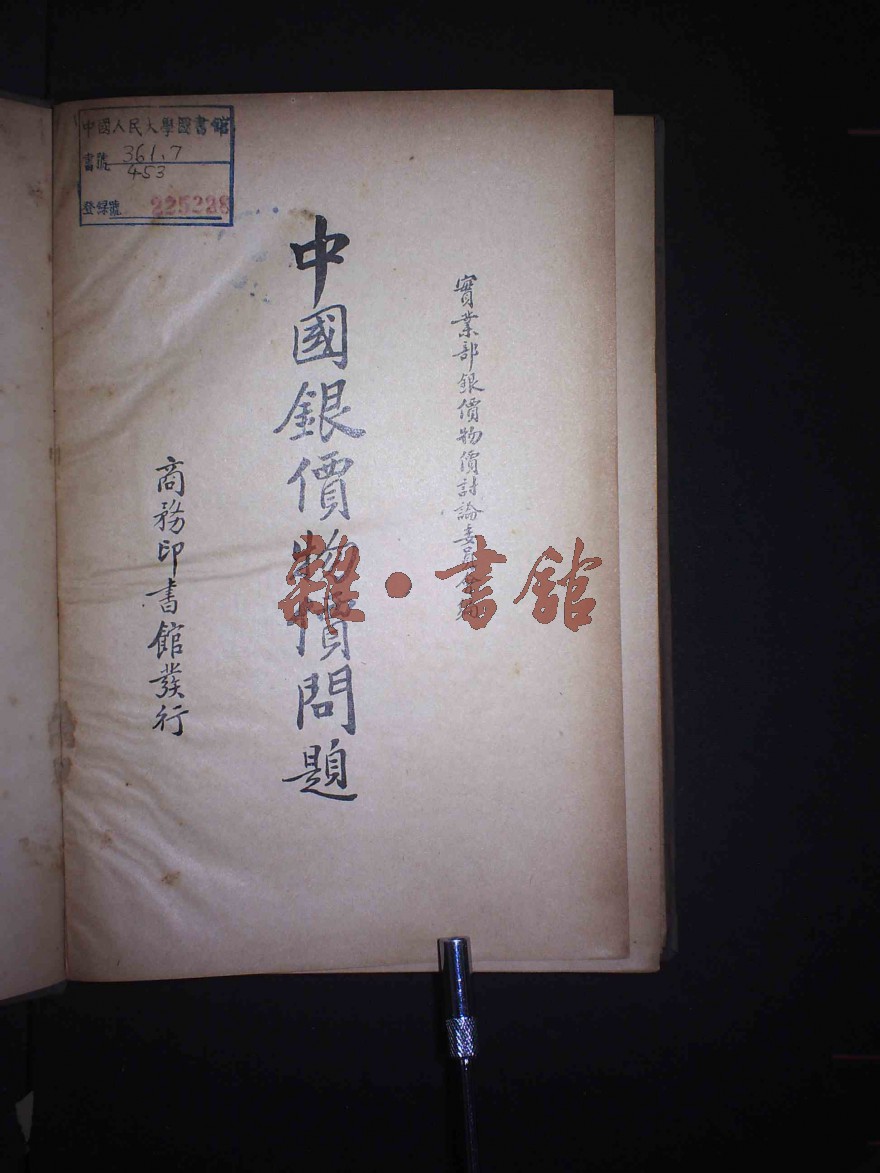 實業部銀價物價討論委員會編
中國銀價物價問題
商務印書館發行
中國人民大學圖書館
書號 361.7
453
登録號 225228
雜·書館